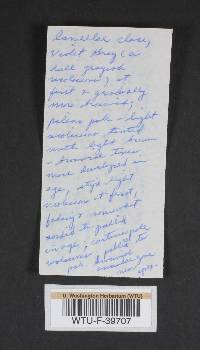 lamellae close,
Violet Gray (a
dull grayish
violaceous) at
first & gradually
more
palens pale - light
avellaneous, tinted
with light brown
- brownish tones
more developed in
age, stipe light
violaceous at first,
fading & somewhat
sordid to pallid
in age; cortina pale
violaceous pallid to
pale
new spp.
U. Washington Herbarium (WTU)
WTU-F-39707